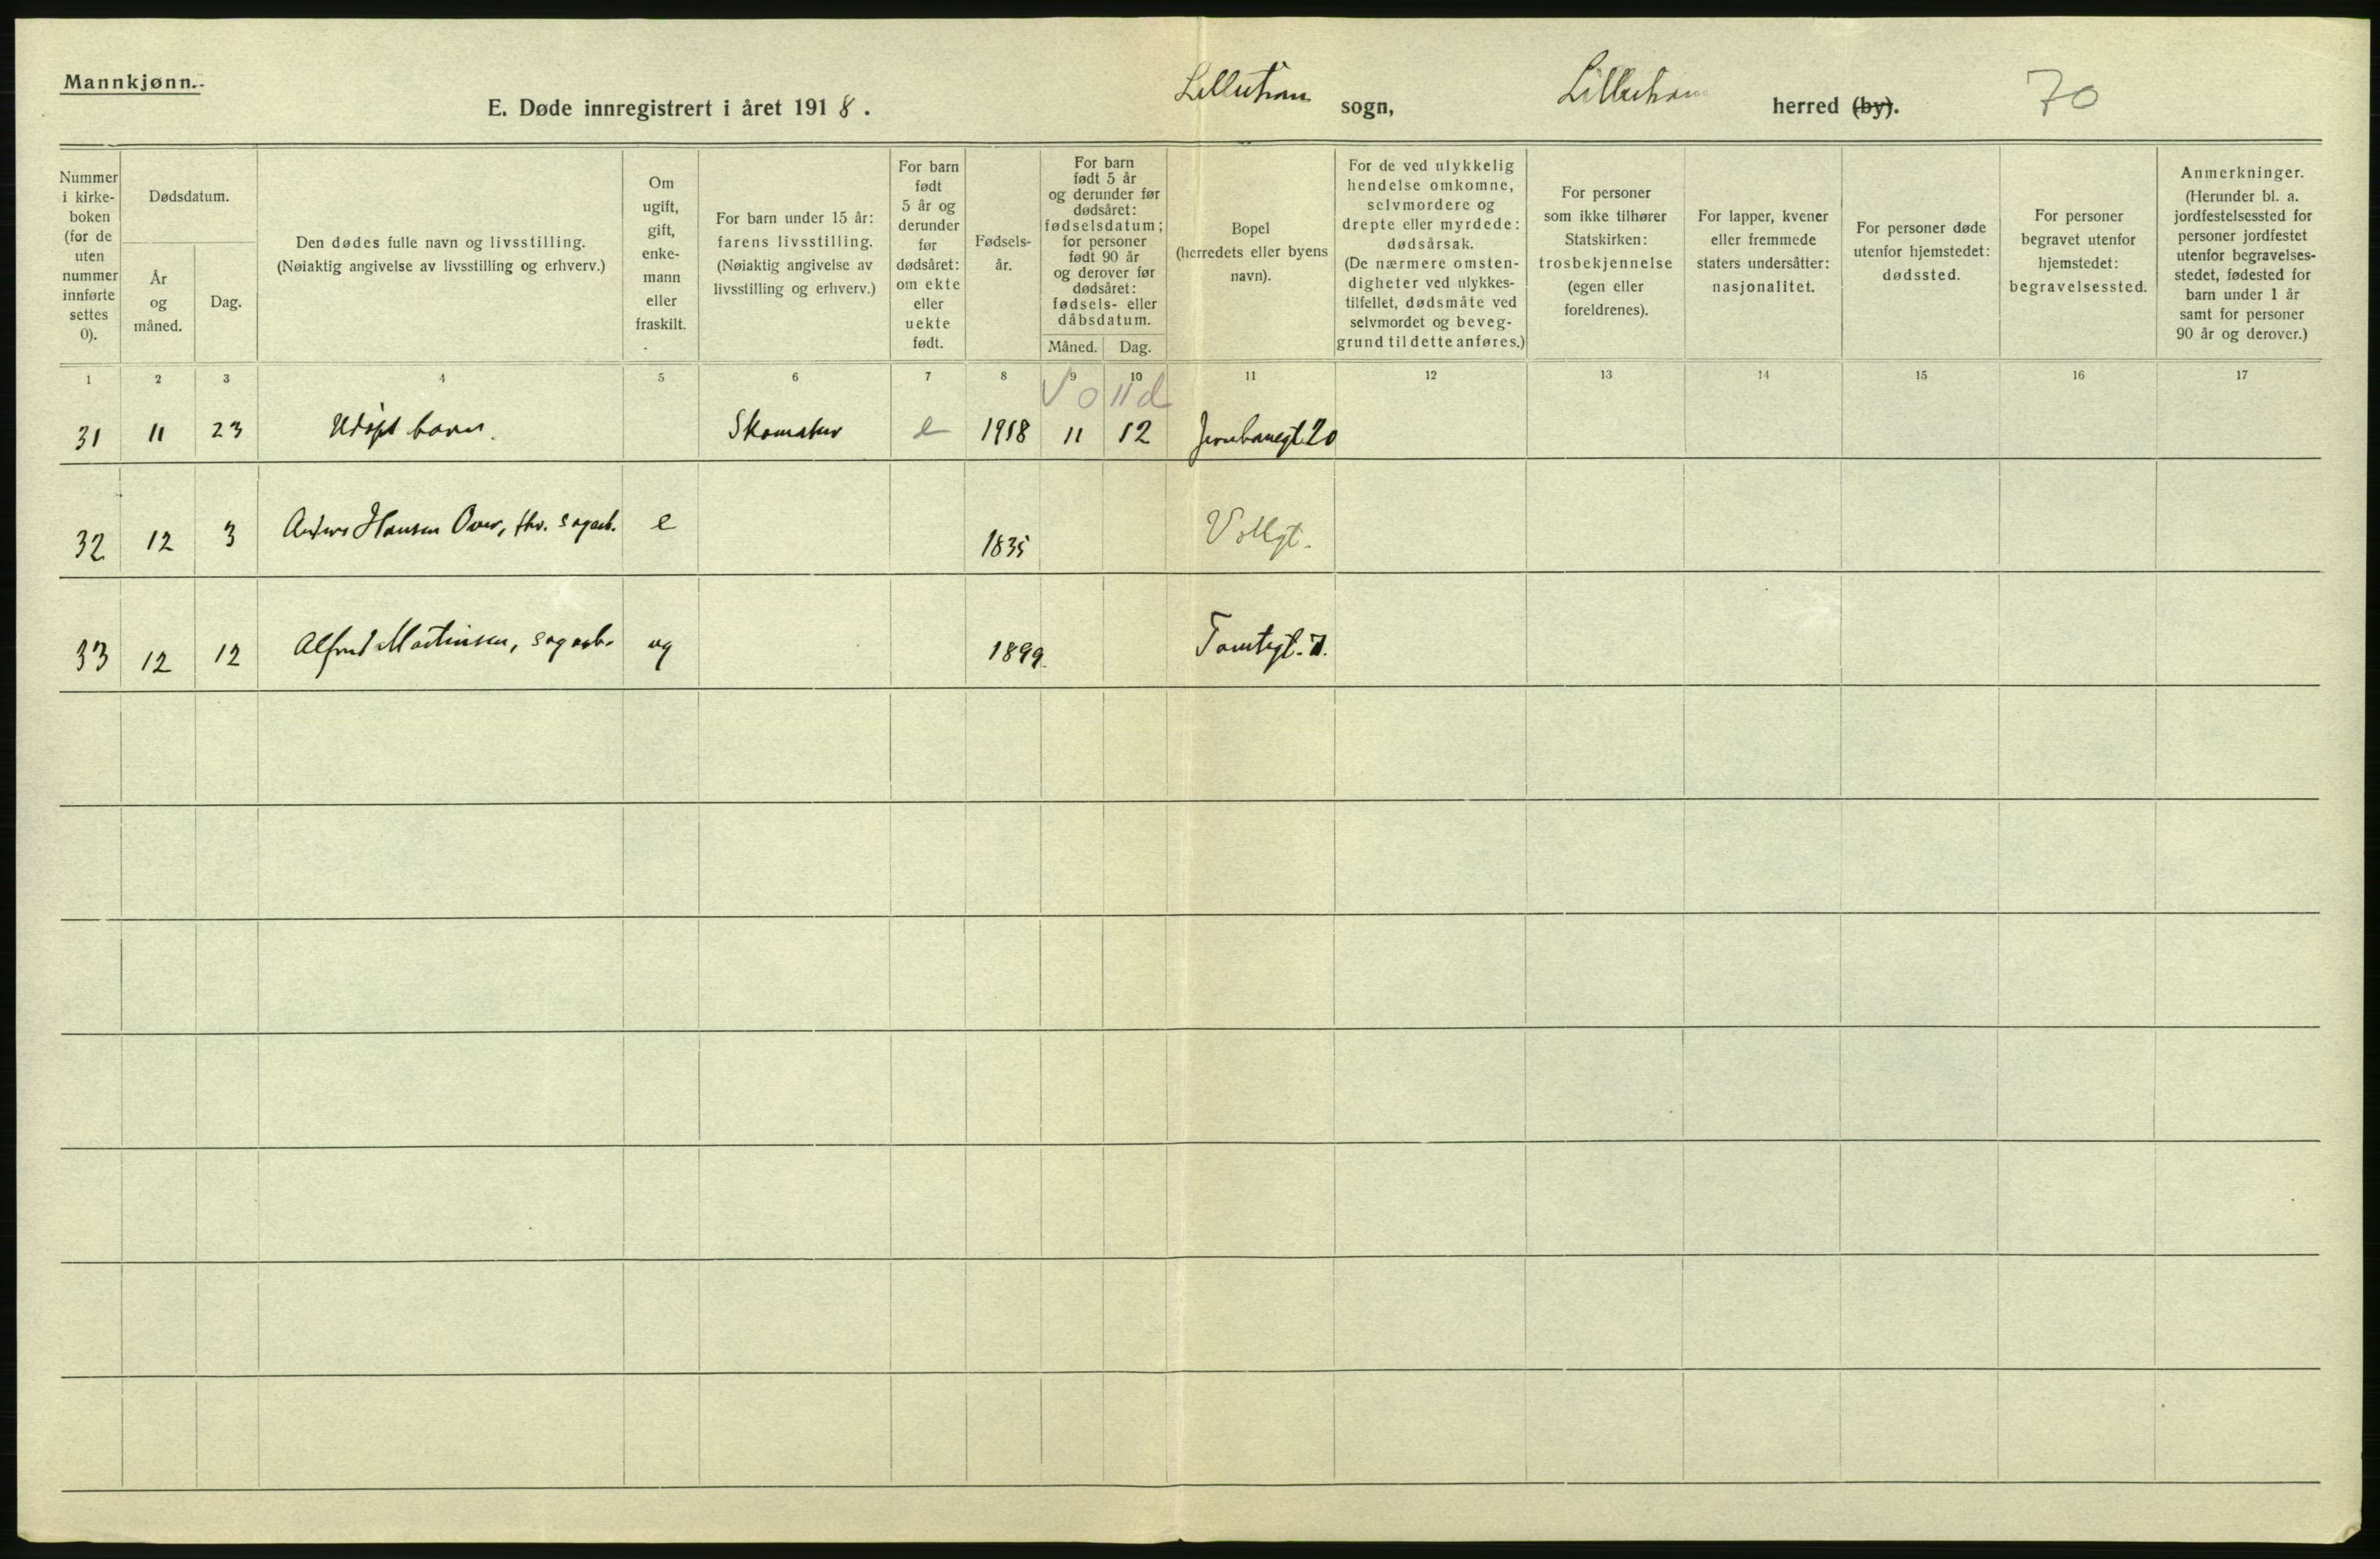 Mannkjønn.
E. Døde innregistrert i året 1918. Lillestrøm sogn, Lillestrøm herred (by). 70
Nummer i kirkeboken (for de uten nummer innførte settes 0).
Dødsdatum.
År og måned.
Dag.
Den dødes fulle navn og livsstilling.
(Nøiaktig angivelse av livsstilling og erhverv.)
Om ugift, gift, enkemann eller fraskilt.
For barn under 15 år: farens livsstilling.
(Nøiaktig angivelse av livsstilling og erhverv.)
For barn født 5 år og derunder før dødsåret: om ekte eller uekte født.
Fødselsår.
For barn født 5 år og derunder før dødsåret: fødselsdatum; for personer født 90 år og derover før dødsåret: fødsels- eller dåbsdatum.
Måned. Dag.
Bopel (herredets eller byens navn).
For de ved ulykkelig hendelse omkomne, selvmordere og drepte eller myrdede: dødsårsak.
(De nærmere omstendigheter ved ulykkestilfellet, dødsmåte ved selvmordet og beveggrund til dette anføres.)
For personer som ikke tilhører Statskirken: trosbekjennelse (egen eller foreldrenes).
For lapper, kvener eller fremmede staters undersåtter: nasjonalitet.
For personer døde utenfor hjemstedet: dødssted.
For personer begravet utenfor hjemstedet: begravelsessted.
Anmerkninger.
(Herunder bl. a. jordfestelsessted for personer jordfestet utenfor begravelsesstedet, fødested for barn under 1 år samt for personer 90 år og derover.)
1 2 3 4 5 6 7 8 9 10 11 12 13 14 15 16 17
0 11 d
31 11 23 Udøpt barn. Skomaker e 1918 11 12 Jernbanegt. 20
32 12 3 Anders Hansen fhv. sagarb. e 1835 Vollgt.
33 12 12 Alfred Martinsen, sagarb. ug 1899. Tomtegt. 7.